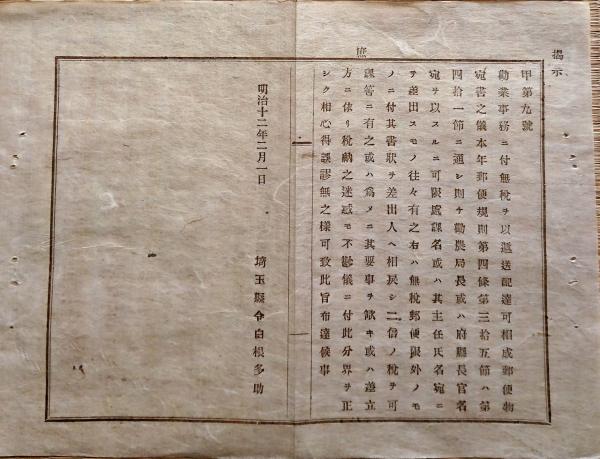 掲示
甲第九號
勸業事務ニ付無稅ヲ以遞送配達可相成郵便物
宛書之儀本年郵便規則第四條第三拾五節ハ第
四拾一節ニ遵シ則チ勸農局長或ハ府縣長官名
宛ヲ以スルニ可限處課名或ハ其主任氏名宛ニ
ヲ差出スモノ往々有之右ハ無稅郵便限外ノモ
ノニ付其書狀ヲ差出人ヘ相戾シ二信ノ稅ヲ可
課筈ニ有之或ハ爲メニ其要事ヲ欠キ或ハ差立
方ニ依リ稅額之迷惑モ不尠儀ニ付此分界ヲ正
シク相心得誤謬無之樣可致此旨布達候事
明治十二年二月一日
埼玉縣令白根多助
庶